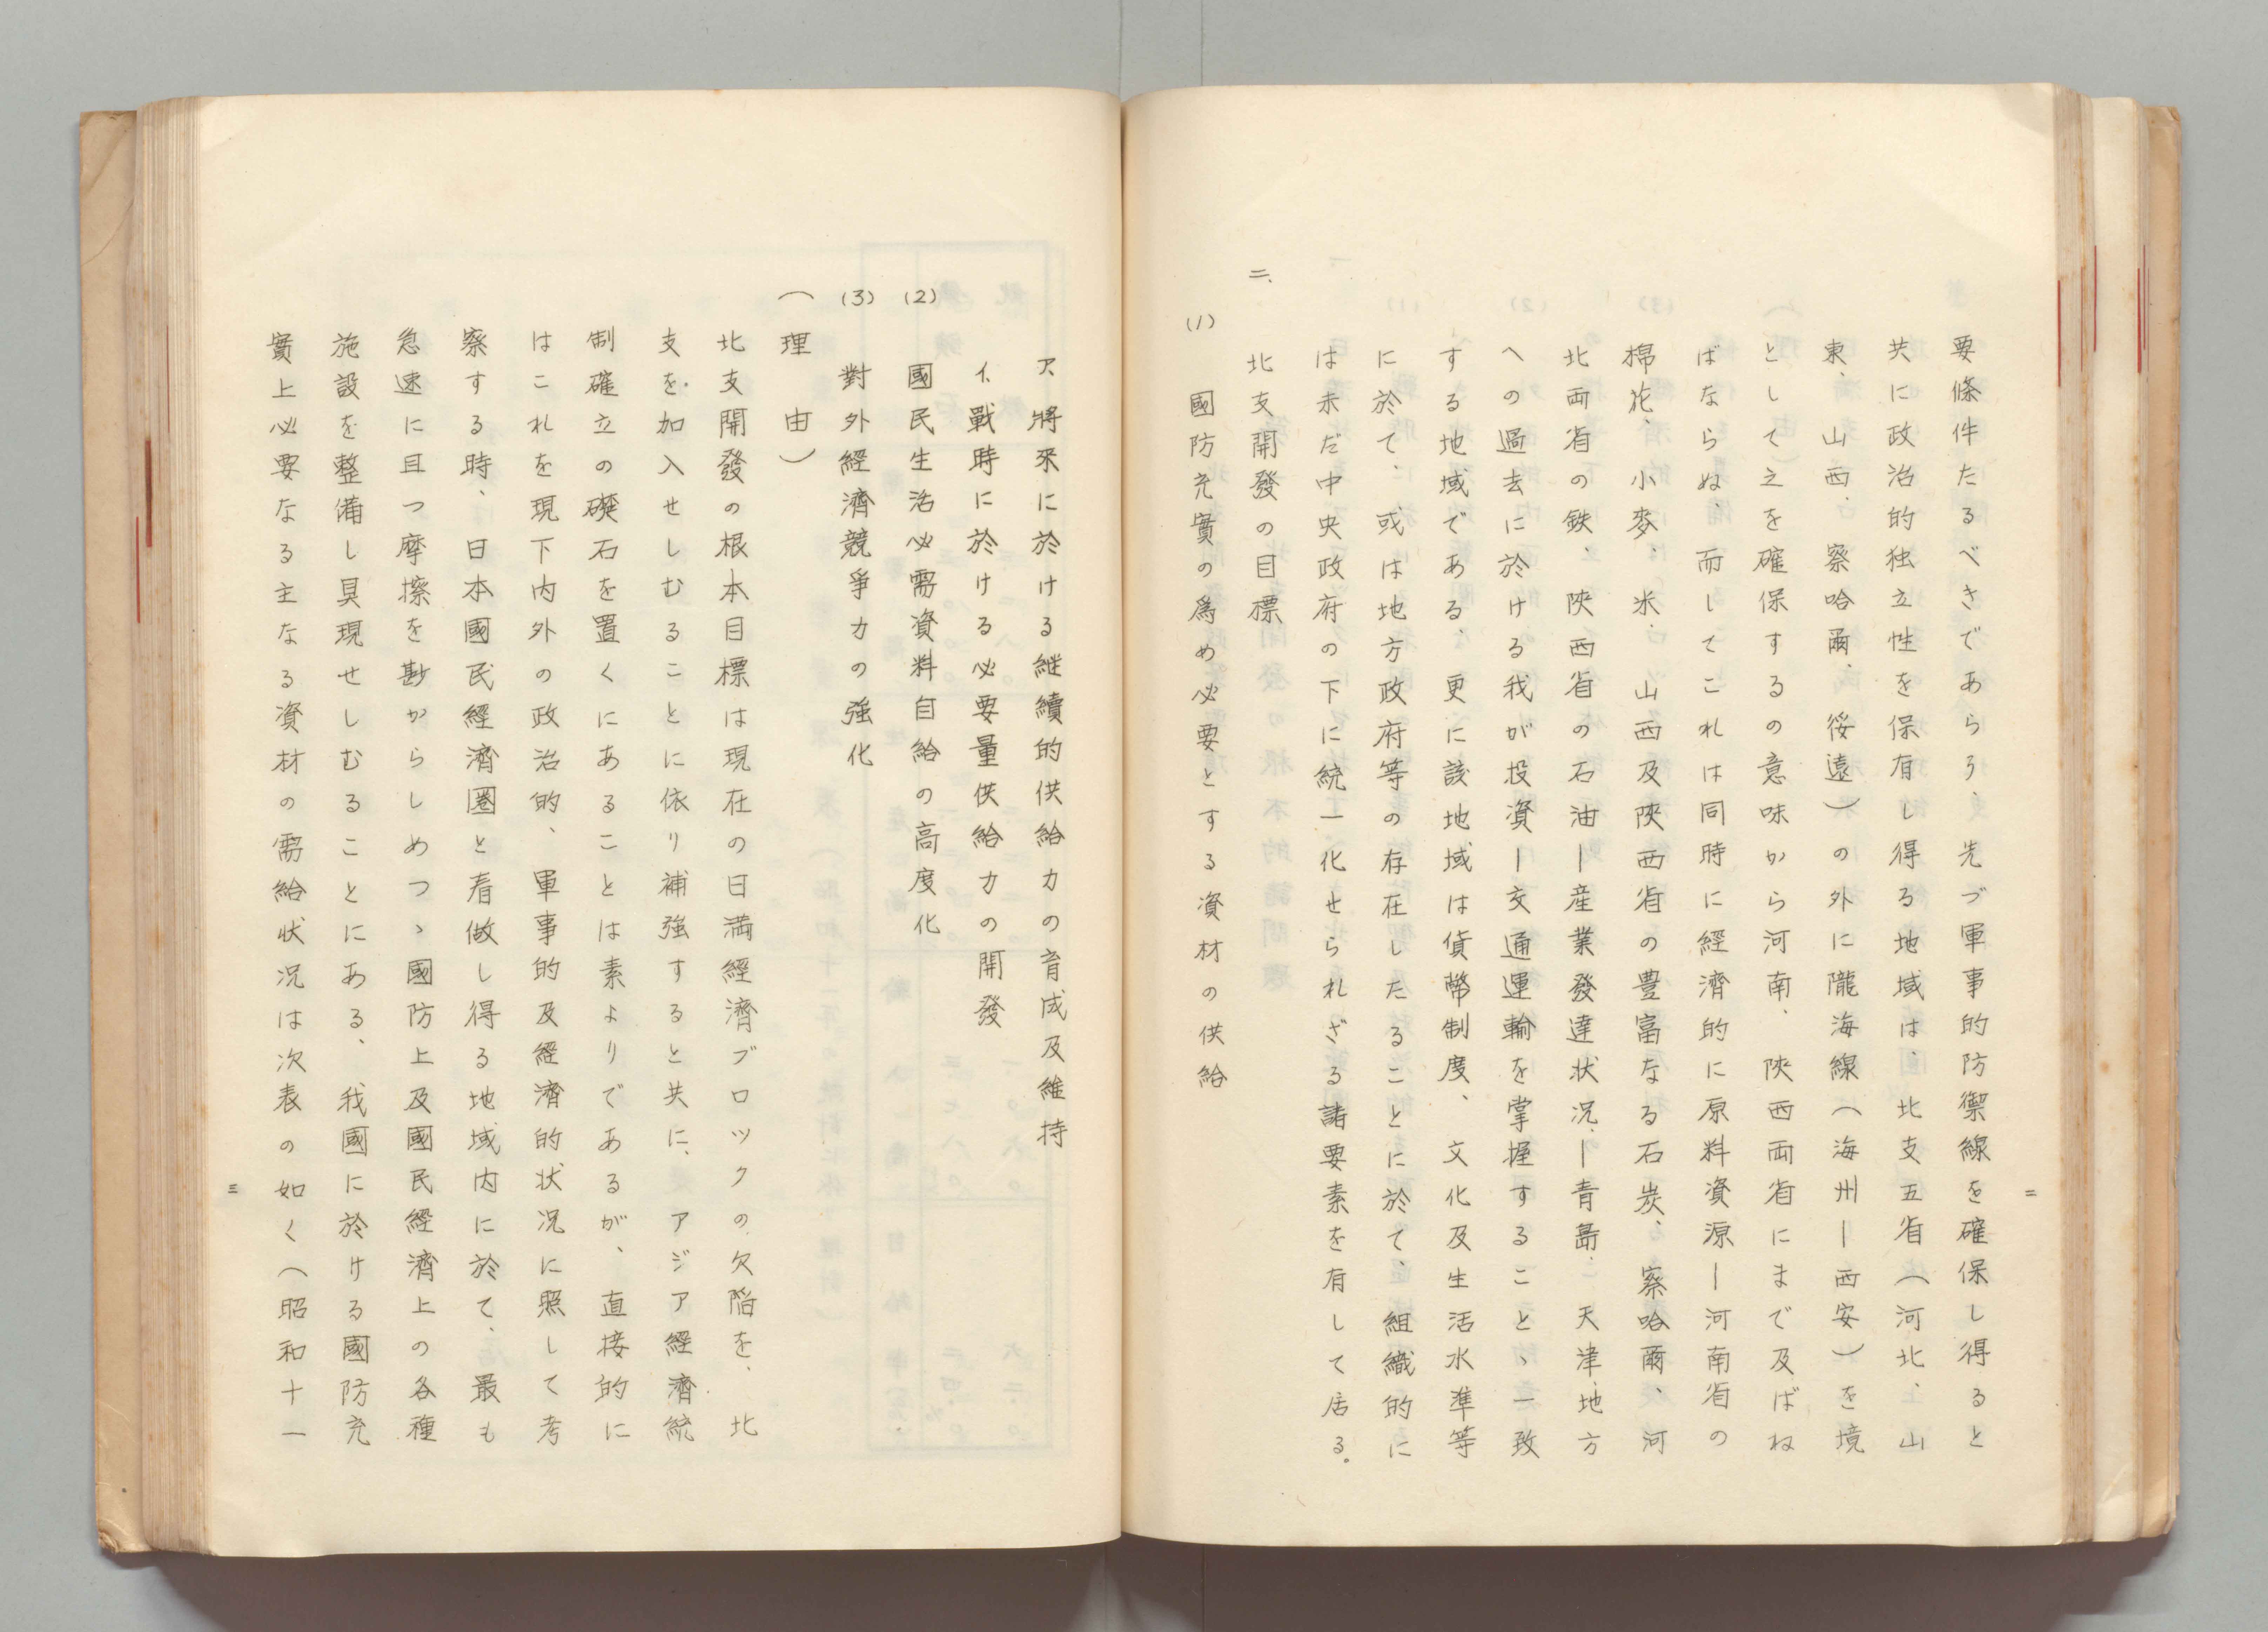 二
要條件たるべきであらう、先づ軍事的防禦線を確保し得ると
共に政治的独立性を保有し得る地域は、北支五省（河北、山
東、山西、察哈爾、綏遠）の外に隴海線（海州ー西安）を境
として之を確保するの意味から河南、陜西両省にまで及ばね
ばならぬ、而してこれは同時に経濟的に原料資源ー河南省の
棉花、小麥、米、山西及陜西省の豊富なる石炭、察哈爾、河
北両省の鉄、陜西省の石油ー産業發達状況ー青島、天津地方
への過去に於ける我が投資ー交通運輸を掌握すること、一致
する地域である、更に該地域は貨幣制度、文化及生活水準等
に於て、或は地方政府等の存在したることに於て、組織的に
は未だ中央政府の下に統一化せられざる諸要素を有して居る。
二、北支開發の目標
(1) 國防充實の為め必要とする資材の供給
ア、將來に於ける継續的供給力の育成及維持
イ、戰時に於ける必要量供給力の開發
(2) 國民生活必需資料自給の高度化
(3) 對外経濟競爭力の強化
（理由）
北支開發の根本目標は現在の日満経濟ブロックの欠陥を、北
支を加入せしむることに依り補強すると共に、アジア経濟統
制確立の礎石を置くにあることは素よりであるが、直接的に
はこれを現下内外の政治的、軍事的及経濟的状況に照して考
察する時、日本國民經濟圏と看做し得る地域内に於て、最も
急速に且つ摩擦を尠からしめつゝ國防上及國民經濟上の各種
施設を整備し具現せしむることにある、我國に於ける國防充
實上必要なる主なる資材の需給状況は次表の如く（昭和十一
三